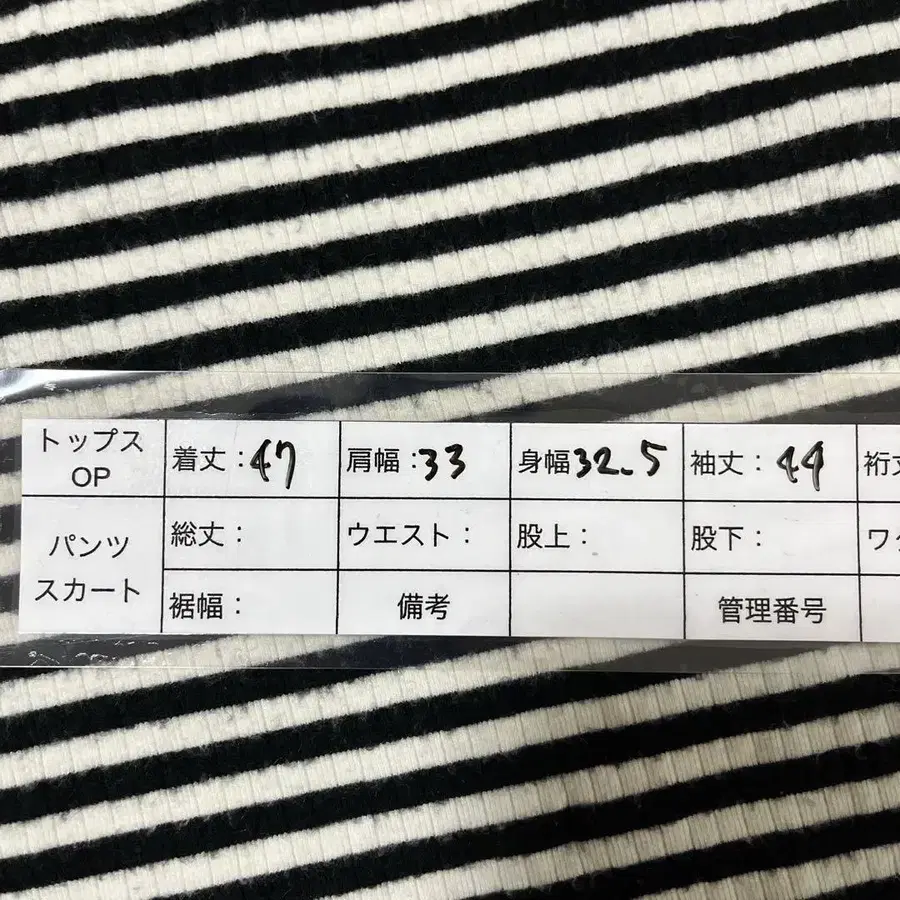 トップス OP 着丈：47 肩幅：33 身幅 32.5 袖丈：44 裄丈
パンツ スカート 総丈： ウエスト： 股上： 股下： ワタ
裾幅： 備考 管理番号